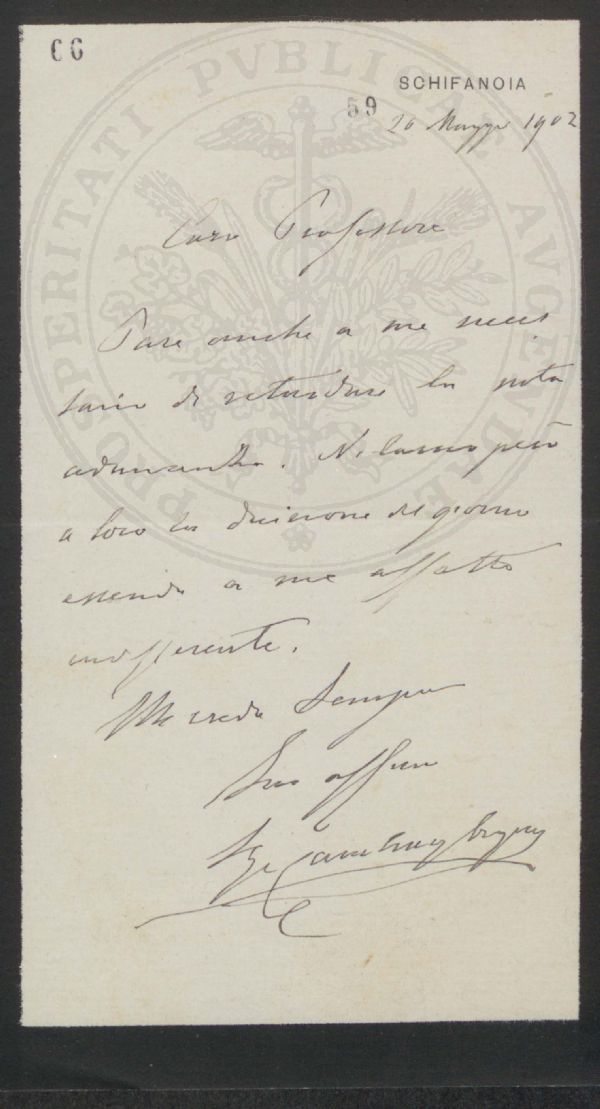 66
SCHIFANOIA
59
26 Maggio 1902
PROSPERITATI PVBLICAE AVGENDAE
Caro Professore
Pare anche a me neces
sario di ritardare la nota
adunanza. Ne lascio però
a loro la decisione del giorno
essendo a me affatto
indifferente.
Mi creda sempre
Suo affmo